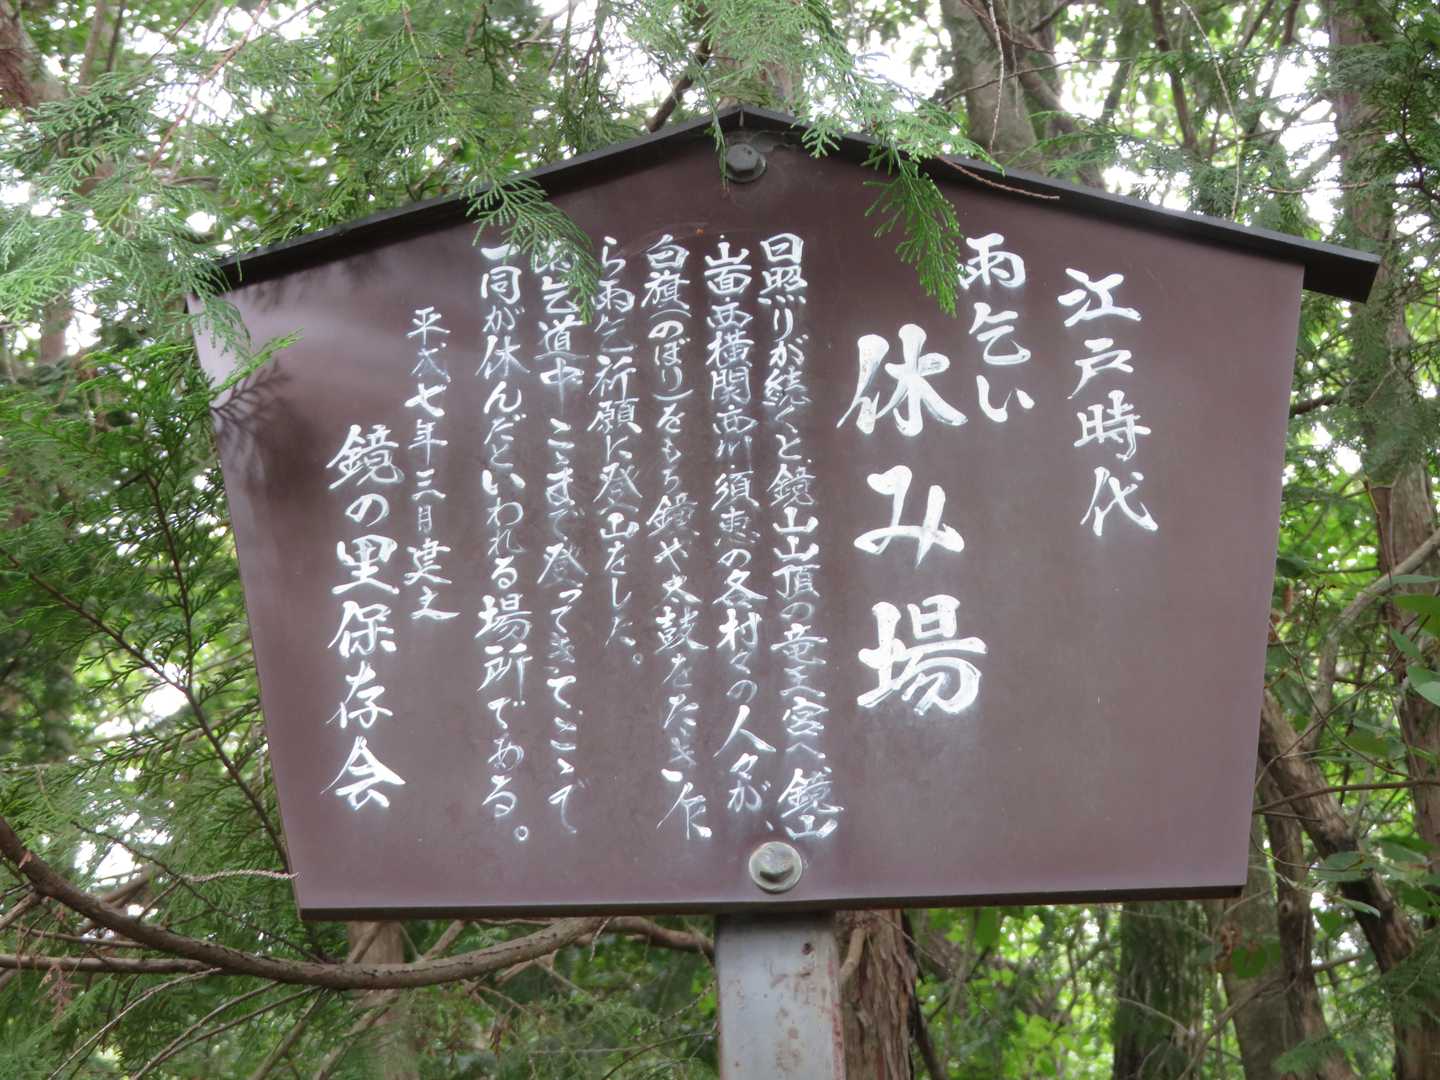 江戸時代
雨乞い
休み場
日照りが続くと鏡山山頂の竜王宮へ鏡山
山面西横関西川須恵の各村々の人々が、
白旗(のぼり)をもち鐘や太鼓をたゝき乍
ら雨乞祈願に登山をした。
雨乞道中ここまで登ってきてここで
一同が休んだといわれる場所である。
平成七年三月建之
鏡の里保存会